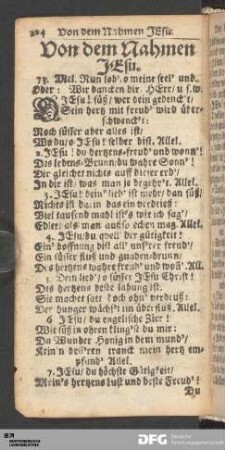 284 Von dem Nahmen JEsu.
Von dem Nahmen
JEsu.
73. Mel. Nun lob' o meine seel' und
Oder: Wir dancken dir HErr / u. s. w.
O JEsu! süß / wer dein gedenckt /
Sein hertz mit freud' wird über-
schwenckt:
Noch süsser aber alles ist /
Wo du / o JEsu! selber bist. Allel.
2. JEsu! du hertzens-freud' und wonn'!
Des lebens-Brunn / du wahre Sonn'!
Dir gleichet nichts auff dieser erd /
In dir ist / was man je begehr't. Allel.
3. JEsu! dein' lieb' ist mehr dan süß /
Nichts ist darin das ein verdrieß:
Viel tausend mahl ist's wie ich sag' /
Edler / als man außsprechen mag. Allel.
4. JEsu / du quell der gütigkeit!
Ein' hoffnung bist all' uns'rer freud' /
Ein süsser fluß und gnaden-brunn /
Des hertzens wahre freud' und wonn'. All.
5. Dein lieb' / o süsser JEsu Christ!
Des hertzens beste labung ist:
Sie machet satt / doch ohn' verdruß:
Der hunger wächs't im überfluß. Allel.
6 JEsu / du engelische Zier!
Wie süß in ohren kling'st du mir:
Du Wunder-Honig in dem mund' /
Kein'n besseren tranck mein hertz em-
pfund' Allel.
7. JEsu / du höchste Gütigkeit /
Mein's hertzens lust und beste Freud'!
Du
DFG Deutsche
Forschungsgemeinschaft